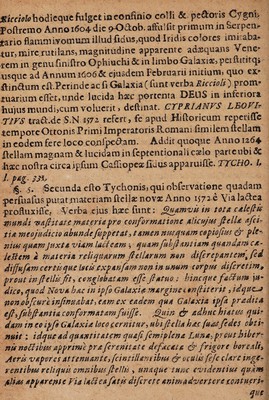 Ricciolo hodieque fulget in confinio colli & pectoris Cygni.
Postremo Anno 1604 die 9 Octob. affulsit primum in Serpen-
tario flammivomum illud sidus, quod Iridis colores imitaba-
tur, mire rutilans, magnitudine apparente adæquans Vene-
rem in genu sinistro Ophiuchi & in limbo Galaxiæ, perstititq;
usque ad Annum 1606 & ejusdem Februarii initium, quo ex-
stinctum est. Perinde ac si Galaxia (sunt verba Riccioli) prom-
tuarium esset, unde lucida hæc portenta DEUS in inferiora
hujus mundi, cum voluerit, destinat. CYPRIANUS LEOVI-
TIUS tract. de S.N. 1572 refert, se apud Historicum reperisse
tempore Ottonis Primi Imperatoris Romani similem stellam
in eodem fere loco conspectam. Addit quoque Anno 1264
stellam magnam & lucidam in septentionali cœlo parte ub &
hæc nostra circa ipsum Cassiopeæ sidus apparuisse. TYCHO. l.
l. pag. 331.
§. 5. Secunda esto Tychonis, qui observatione quadam
persuasus putat materiam stellæ novæ Anno 1572 è Via lactea
prostuxisse. Verba ejus hæc sunt: Quamvis in tota cælesti
mundi vastitate materia pro conformatione alicujus stellæ asci-
titia meo judicio abunde suppetat, tamen nusquam copiosius & ple-
nius quam juxta viam lacteam, quam substantiam quandam cæ-
lestem à materia reliquarum stellarum non discrepantem, sed
diffusam certisque locis expansam non in unum corpus discretim,
prout in stellis fit, conglobatam esse statuo: hincque factum ju-
dico, quod Nova hæc in ipso Galaxiæ margine constiterit, idque
non obscurè innuebat, eam ex eadem qua Galaxia ipsa prædita
est, substantia conformatam fuisse. Quin & adhuc hiatus qui-
dam in eo ipso Galaxiæ loco cernitur, ubi stella hæc suas sedes obti-
nuit: idque ad quantitatem quasi semiplenæ Lunæ, prout hiber-
nis noctibus apprimè præ serenitate defæcata & frigore boreali,
Aeris vapores attenuante, scintillantibus & oculis sese clare inge-
rentibus reliquis omnibus stellis, unaque tunc evidentius quàm
alias apparente Via lactea satis discrete animadvertere contueri-
que